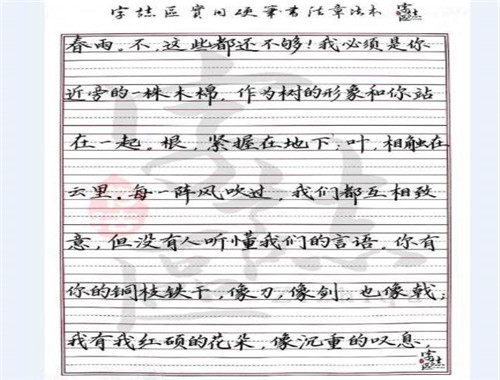 字誌區實用硬筆书法章法本
春雨。不,这些都还不够!我必须是你
近旁的一株木棉,作为树的形象和你站
在一起。根,紧握在地下;叶,相触在
云里。每一阵风吹过,我们都互相致
意,但没有人听懂我们的言语。你有
你的铜枝铁干,像刀,像剑,也像戟;
我有我红硕的花朵,像沉重的叹息,